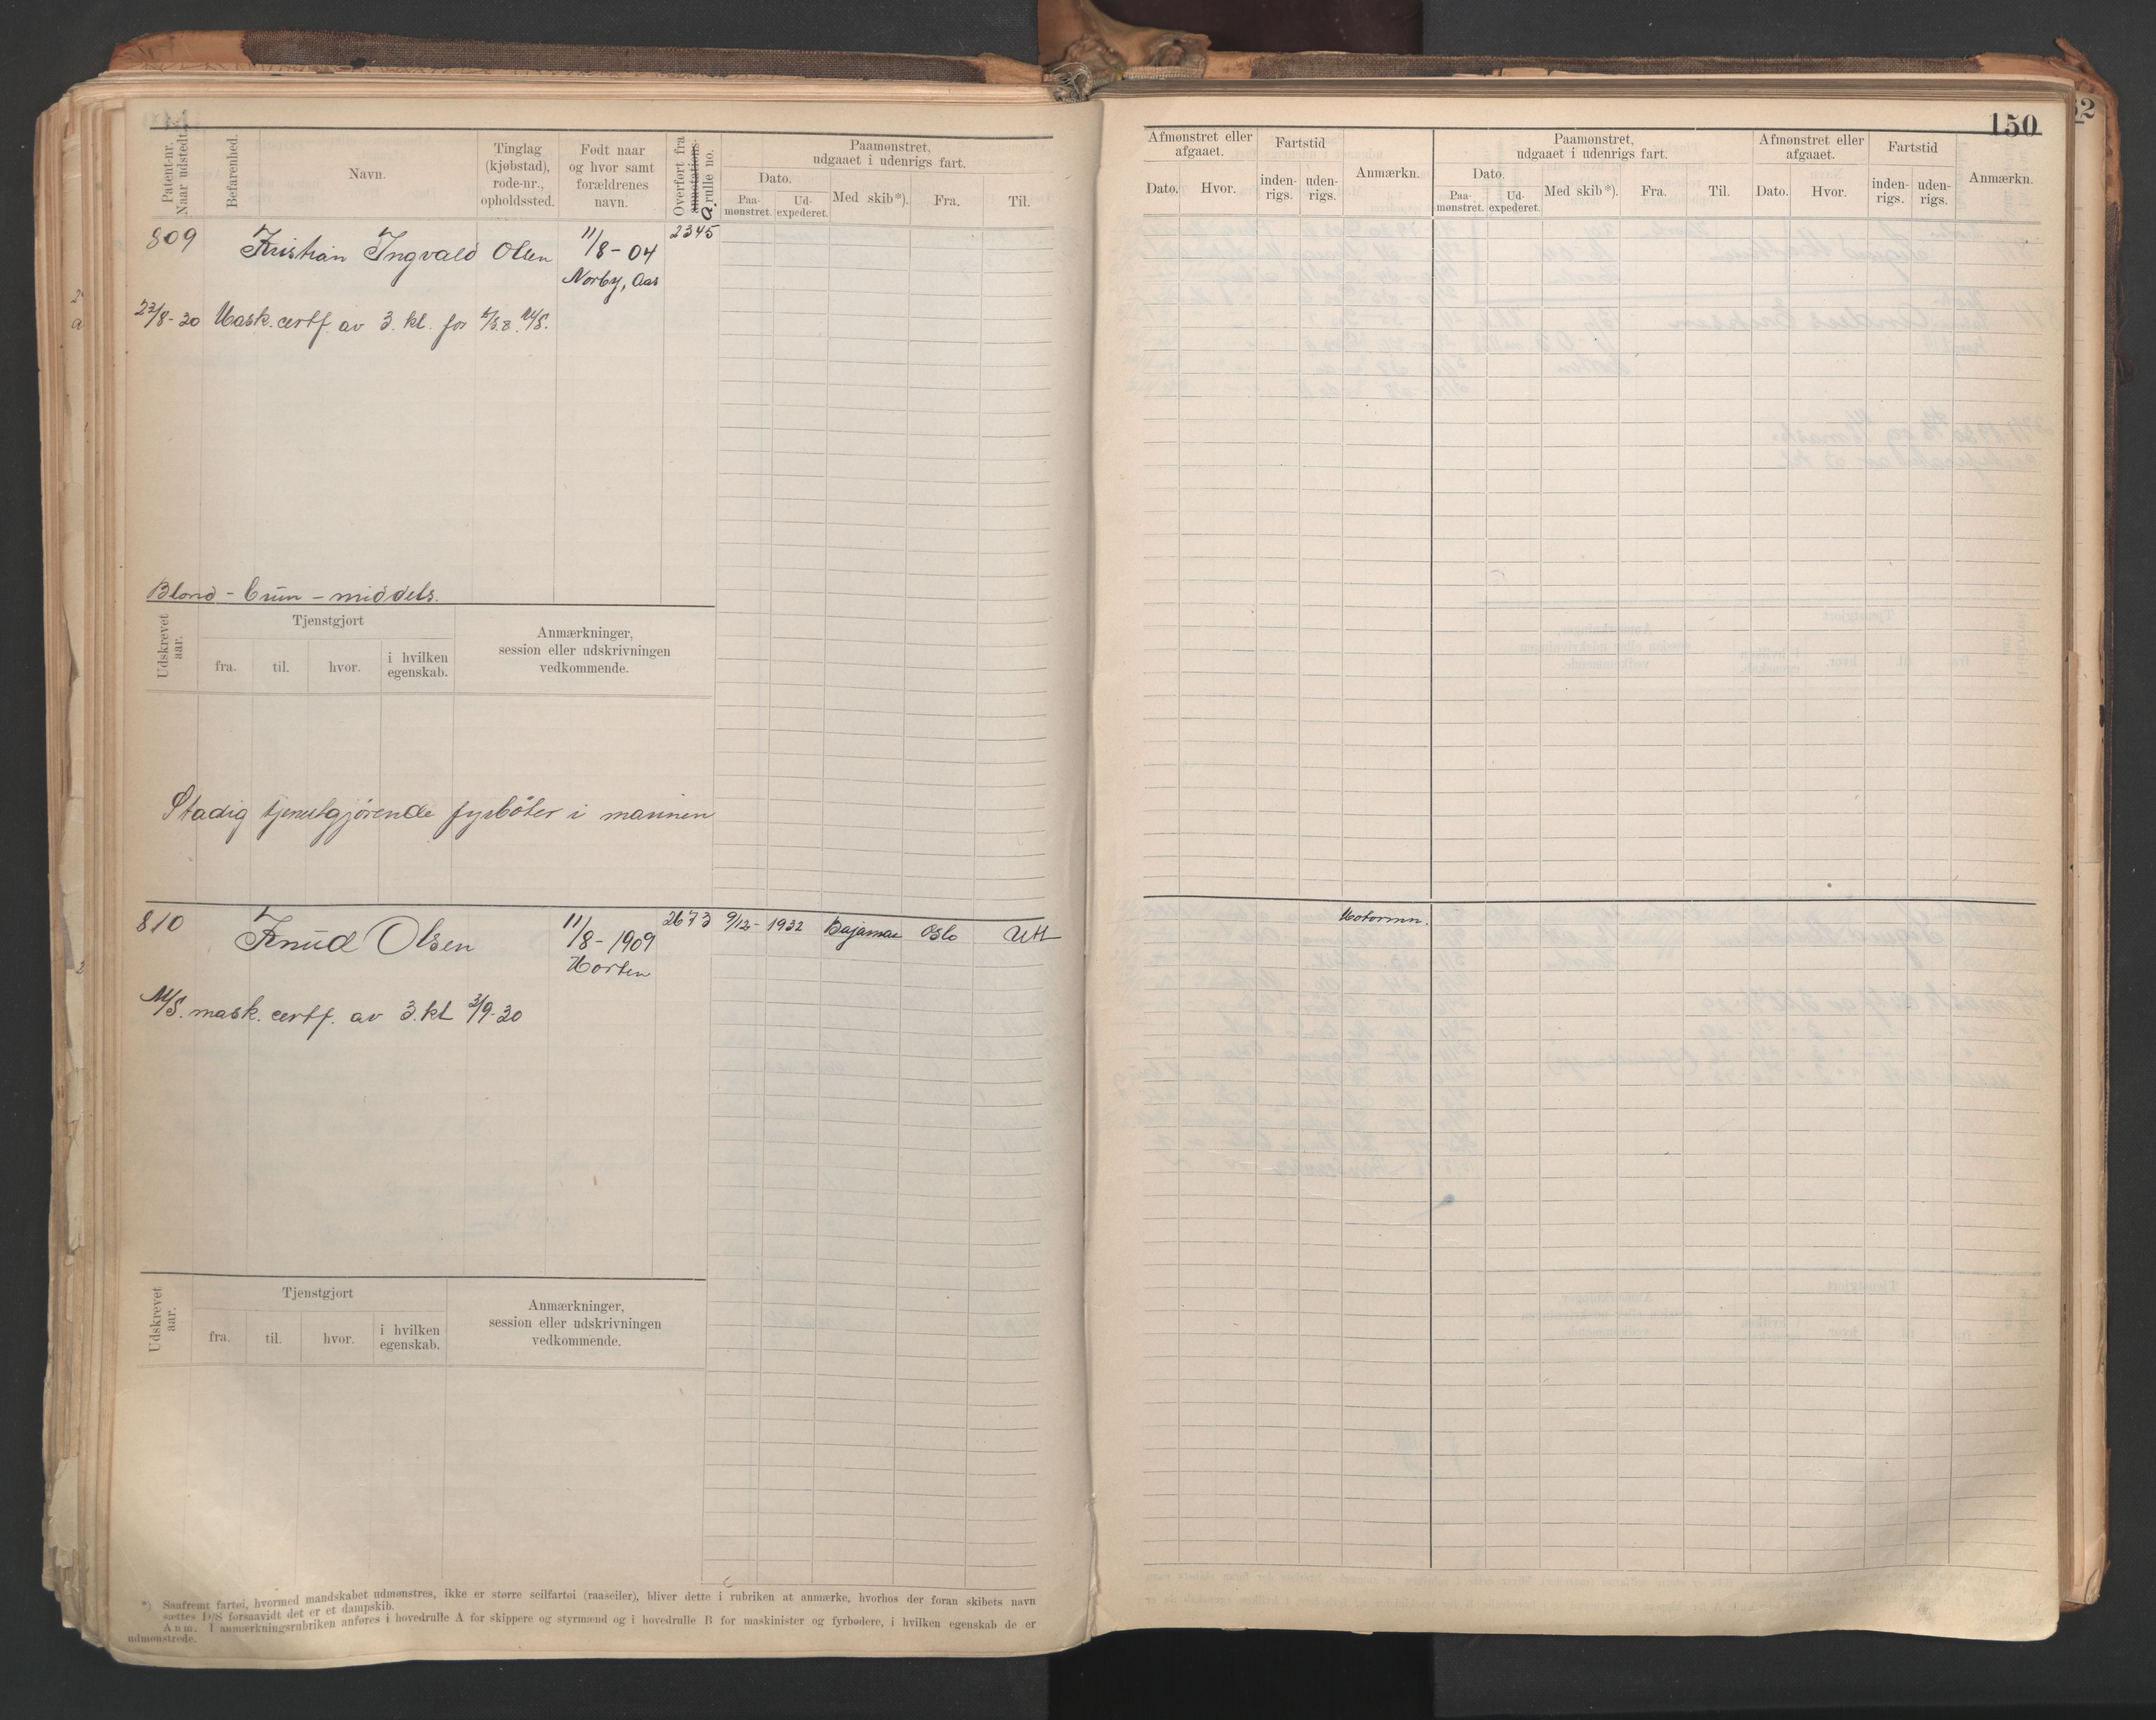 150
Patent-nr.
Naar udstedt.
Befarenhed.
Navn.
Tinglag
(kjøbstad),
rode-nr.,
opholdssted.
Født naar
og hvor samt
forældrenes
navn.
Overført fra
annotations-
a. rulle no.
Paamønstret,
udgaaet i udenrigs fart.
Dato.
Paa-
mønstret.
Ud-
expederet.
Med skib*).
Fra.
Til.
809
Kristian Ingvald Olsen
11/8-04
Norby, Aas
2345
22/8-30 Mask.certf. av 3. kl. for M/S.
Blond - brun - middels.
Udskrevet
aar.
Tjenstgjort
fra.
til.
hvor.
i hvilken
egenskab.
Anmærkninger,
session eller udskrivningen
vedkommende.
Stadig tjenestgjørende fyrbøter i marinen
810
Knud Olsen
11/8-1909
Horten
2673 9/12- 1932 Bajamar Oslo Utl
M/S. mask. certf. av 3. kl 3/9-30
Udskrevet
aar.
Tjenstgjort
fra.
til.
hvor.
i hvilken
egenskab.
Anmærkninger,
session eller udskrivningen
vedkommende.
*) Saafremt fartøi, hvormed mandskabet udmønstres, ikke er større seilfartøi (raaseiler), bliver dette i rubriken at anmærke, hvorhos der foran skibets navn
sættes D/S forsaavidt det er et dampskib.
Anm. I anmærkningsrubriken anføres i hovedrulle A for skippere og styrmænd og i hovedrulle B for maskinister og fyrbødere, i hvilken egenskab de er
udmønstrede.
Afmønstret eller
afgaaet.
Dato.
Hvor.
Fartstid
inden-
rigs.
uden-
rigs.
Anmærkn.
Paamønstret,
udgaaet i udenrigs fart.
Dato.
Paa-
mønstret.
Ud-
expederet.
Med skib*).
Fra.
Til.
Afmønstret eller
afgaaet.
Dato.
Hvor.
Fartstid
inden-
rigs.
uden-
rigs.
Anmærkn.
Motormn.